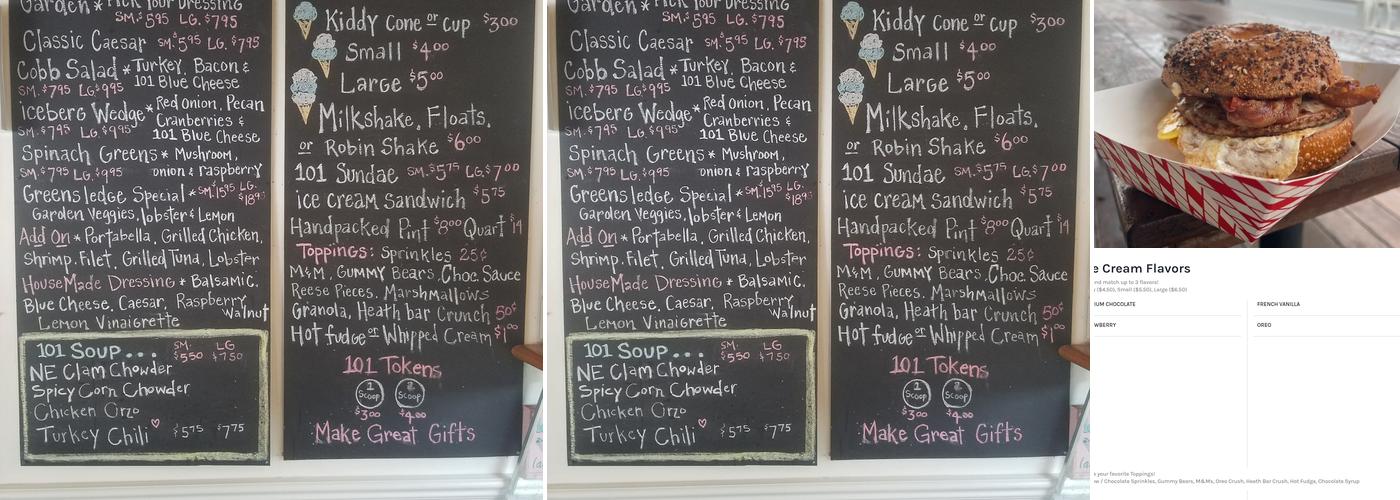 Garden * Pick Your Dressing
SM: $5.95 LG. $7.95
Classic Caesar SM: $5.95 LG. $7.95
Cobb Salad * Turkey, Bacon &
SM. $7.95 LG $9.95 101 Blue Cheese
iceberg Wedge * Red Onion, Pecan
SM. $7.95 LG. $9.95 Cranberries &
101 Blue Cheese
Spinach Greens * Mushroom,
SM. $7.95 LG. $9.95 onion & raspberry
Greensledge Special * SM. $15.95 LG.
Garden Veggies, lobster & Lemon
Add On * Portabella, Grilled Chicken,
Shrimp, Filet, Grilled Tuna, Lobster
HouseMade Dressing * Balsamic,
Blue Cheese, Caesar, Raspberry Walnut
Lemon Vinaigrette
101 Soup... SM. $5.50 LG $7.50
NE Clam Chowder
Spicy Corn Chowder
Chicken Orzo
Turkey Chili $5.75 $7.75
Kiddy Cone or Cup $3.00
Small $4.00
Large $5.00
Milkshake, Floats,
or Robin Shake $6.00
101 Sundae SM. $5.75 LG. $7.00
ice cream Sandwich $5.75
Handpacked Pint $8.00 Quart $14
Toppings: Sprinkles 25¢
M&M, Gummy Bears, Choc. Sauce
Reese Pieces, Marshmallows
Granola, Heath bar Crunch 50¢
Hot fudge or Whipped Cream $1.00
101 Tokens
1 Scoop 2 Scoop
$3.00 $4.00
Make Great Gifts
Garden * Pick Your Dressing
SM: $5.95 LG. $7.95
Classic Caesar SM: $5.95 LG. $7.95
Cobb Salad * Turkey, Bacon &
SM. $7.95 LG $9.95 101 Blue Cheese
iceberg Wedge * Red Onion, Pecan
SM. $7.95 LG. $9.95 Cranberries &
101 Blue Cheese
Spinach Greens * Mushroom,
SM. $7.95 LG. $9.95 onion & raspberry
Greensledge Special * SM. $15.95 LG.
Garden Veggies, lobster & Lemon
Add On * Portabella, Grilled Chicken,
Shrimp, Filet, Grilled Tuna, Lobster
HouseMade Dressing * Balsamic,
Blue Cheese, Caesar, Raspberry Walnut
Lemon Vinaigrette
101 Soup... SM. $5.50 LG $7.50
NE Clam Chowder
Spicy Corn Chowder
Chicken Orzo
Turkey Chili $5.75 $7.75
Kiddy Cone or Cup $3.00
Small $4.00
Large $5.00
Milkshake, Floats,
or Robin Shake $6.00
101 Sundae SM. $5.75 LG. $7.00
ice cream Sandwich $5.75
Handpacked Pint $8.00 Quart $14
Toppings: Sprinkles 25¢
M&M, Gummy Bears, Choc. Sauce
Reese Pieces, Marshmallows
Granola, Heath bar Crunch 50¢
Hot fudge or Whipped Cream $1.00
101 Tokens
1 Scoop 2 Scoop
$3.00 $4.00
Make Great Gifts
e Cream Flavors
nd match up to 3 flavors!
($4.50), Small ($5.50), Large ($6.50)
IUM CHOCOLATE FRENCH VANILLA
WBERRY OREO
your favorite Toppings!
/ Chocolate Sprinkles, Gummy Bears, M&M's, Oreo Crush, Heath Bar Crush, Hot Fudge, Chocolate Syrup